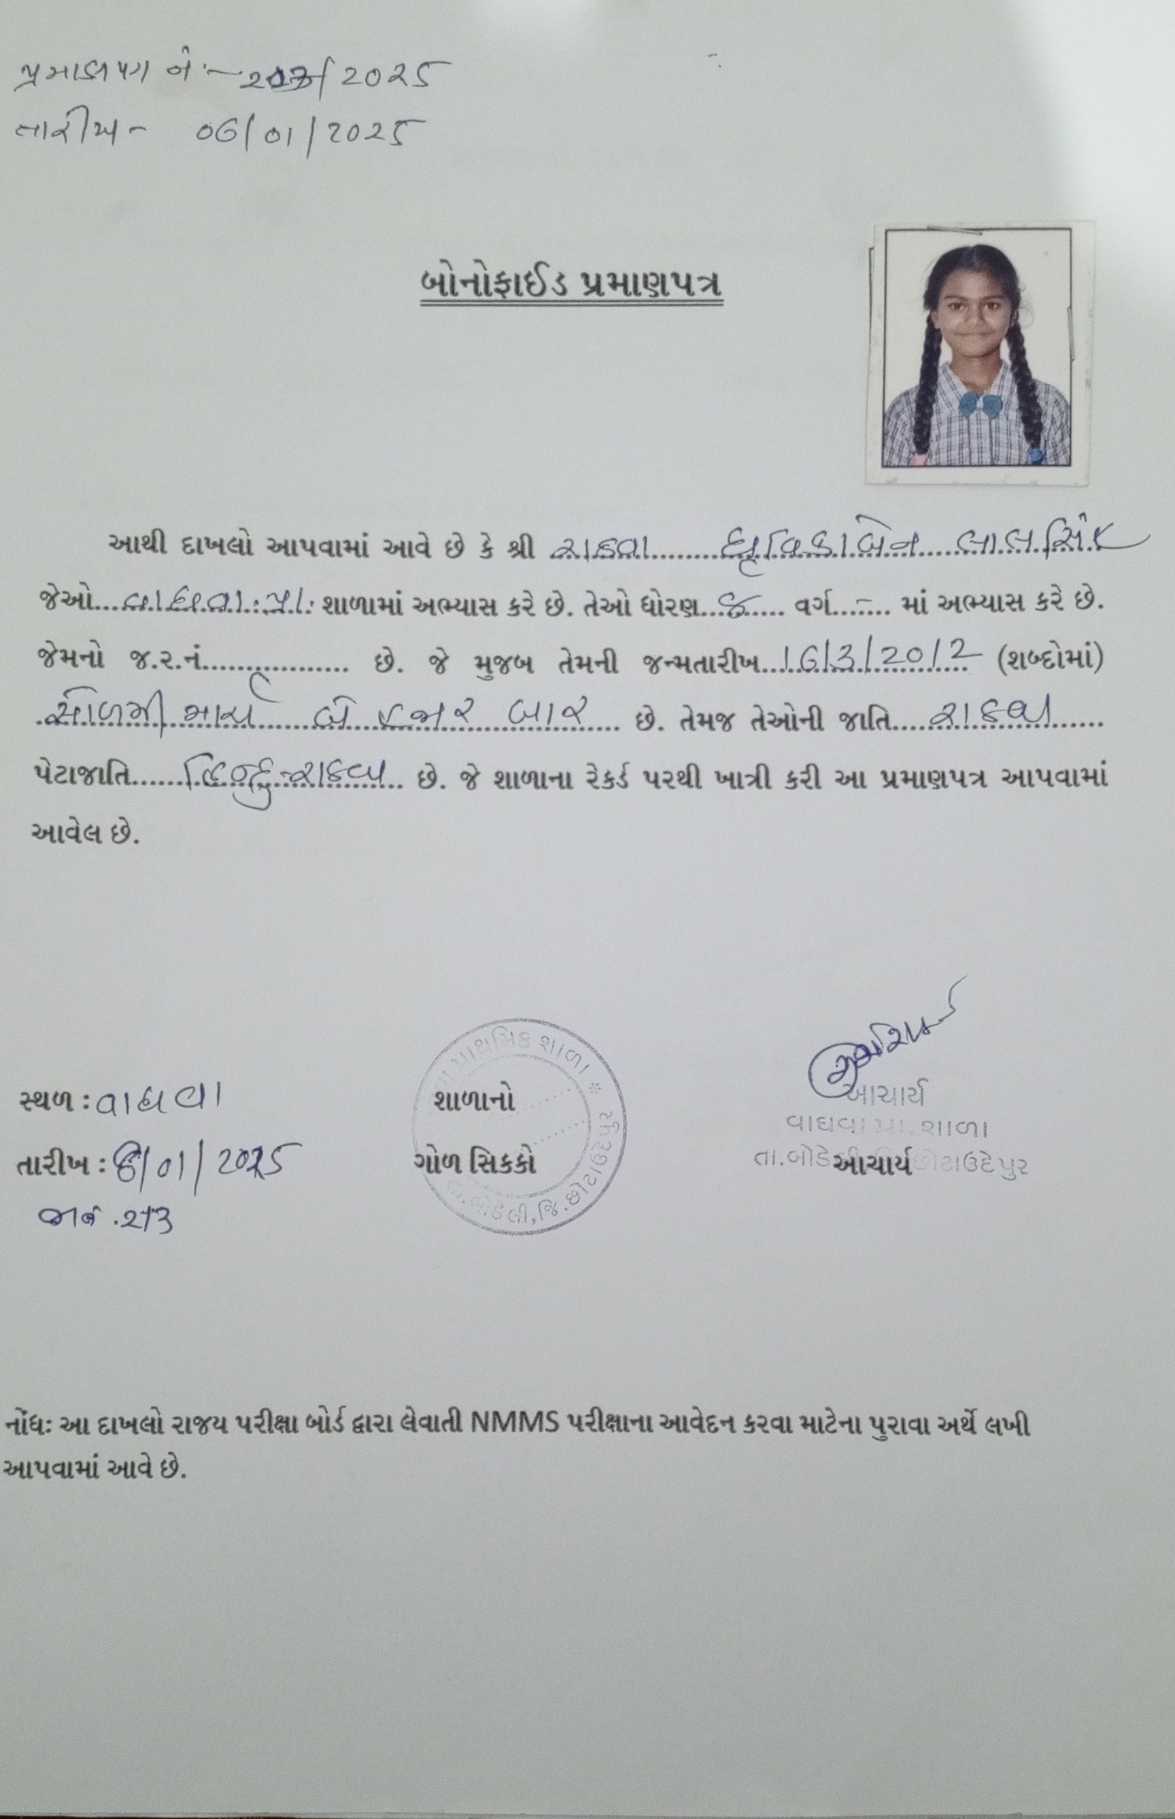 પ્રમાણપત્ર નં :- 203/2025
તારીખ - 06/01/2025
બોનોફાઈડ પ્રમાણપત્ર
આથી દાખલો આપવામાં આવે છે કે શ્રી રાઠવા........ લાલસિંહ
જેઓ...વાઘવા.પ્રા. શાળામાં અભ્યાસ કરે છે. તેઓ ધોરણ...૮..... વર્ગ...-.... માં અભ્યાસ કરે છે.
જેમનો જ.ર.નં.................. છે. જે મુજબ તેમની જન્મતારીખ...16/3/2012 (શબ્દોમાં)
સોળમી માર્ચ બે હજાર બાર છે. તેમજ તેઓની જાતિ....રાઠવા......
પેટાજાતિ......હિન્દુ-રાઠવા.. છે. જે શાળાના રેકર્ડ પરથી ખાત્રી કરી આ પ્રમાણપત્ર આપવામાં
આવેલ છે.
સ્થળ : વાઘવા
તારીખ : 6/01/2025
જા.નં. 213
શાળાનો
ગોળ સિક્કો
પ્રાથમિક શાળા * તા.બોડેલી, જિ.છોટાઉદેપુર
આચાર્ય
વાઘવા પ્રા. શાળા
તા.બોડેલી જિ.છોટાઉદેપુર
આચાર્ય
નોંધઃ આ દાખલો રાજય પરીક્ષા બોર્ડ દ્વારા લેવાતી NMMS પરીક્ષાના આવેદન કરવા માટેના પુરાવા અર્થે લખી
આપવામાં આવે છે.